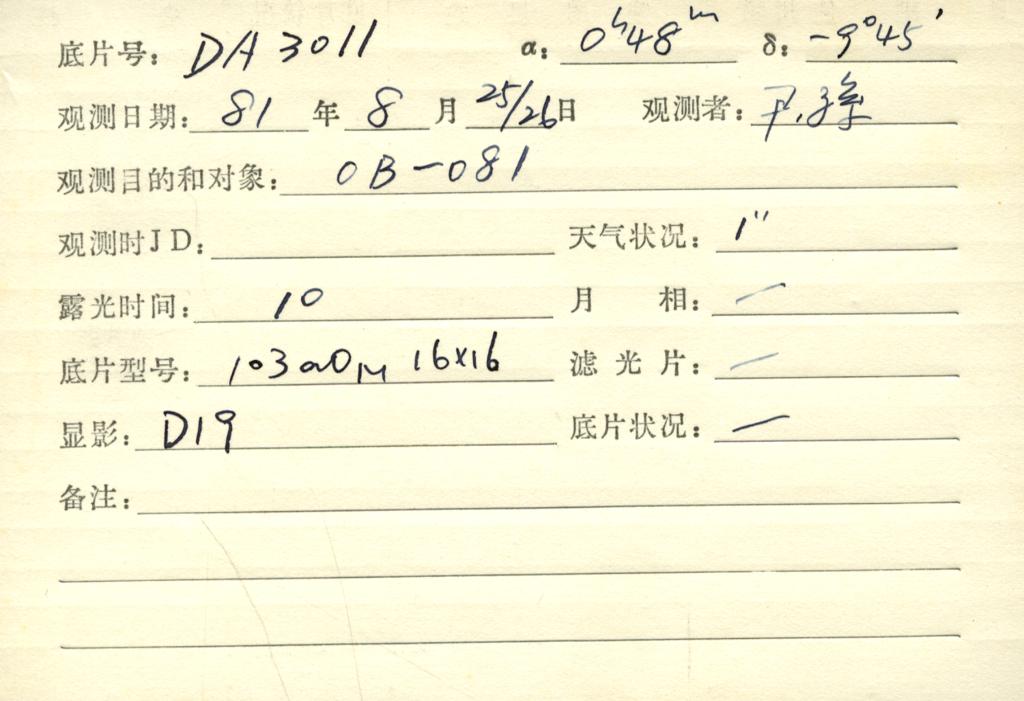 底片号: DA 3011 α: 0h48m δ: -9°45'
观测日期: 81 年 8 月 25/26日 观测者: 尹.孙
观测目的和对象: OB-081
观测时JD: 天气状况: 1"
露光时间: 10 月 相: —
底片型号: 103aO 16×16 滤光片: —
显影: D19 底片状况: —
备注: